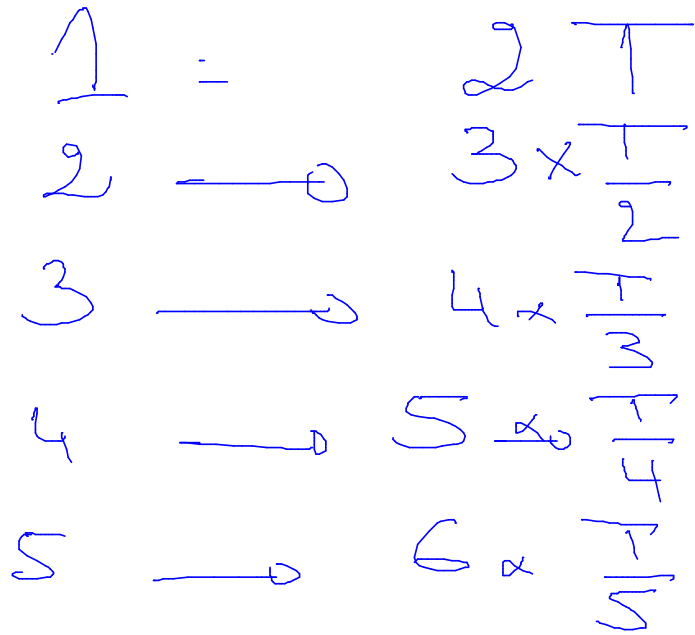 1 = 2 T
2 → 3 × T/2
3 → 4 × T/3
4 → 5 × T/4
5 → 6 × T/5